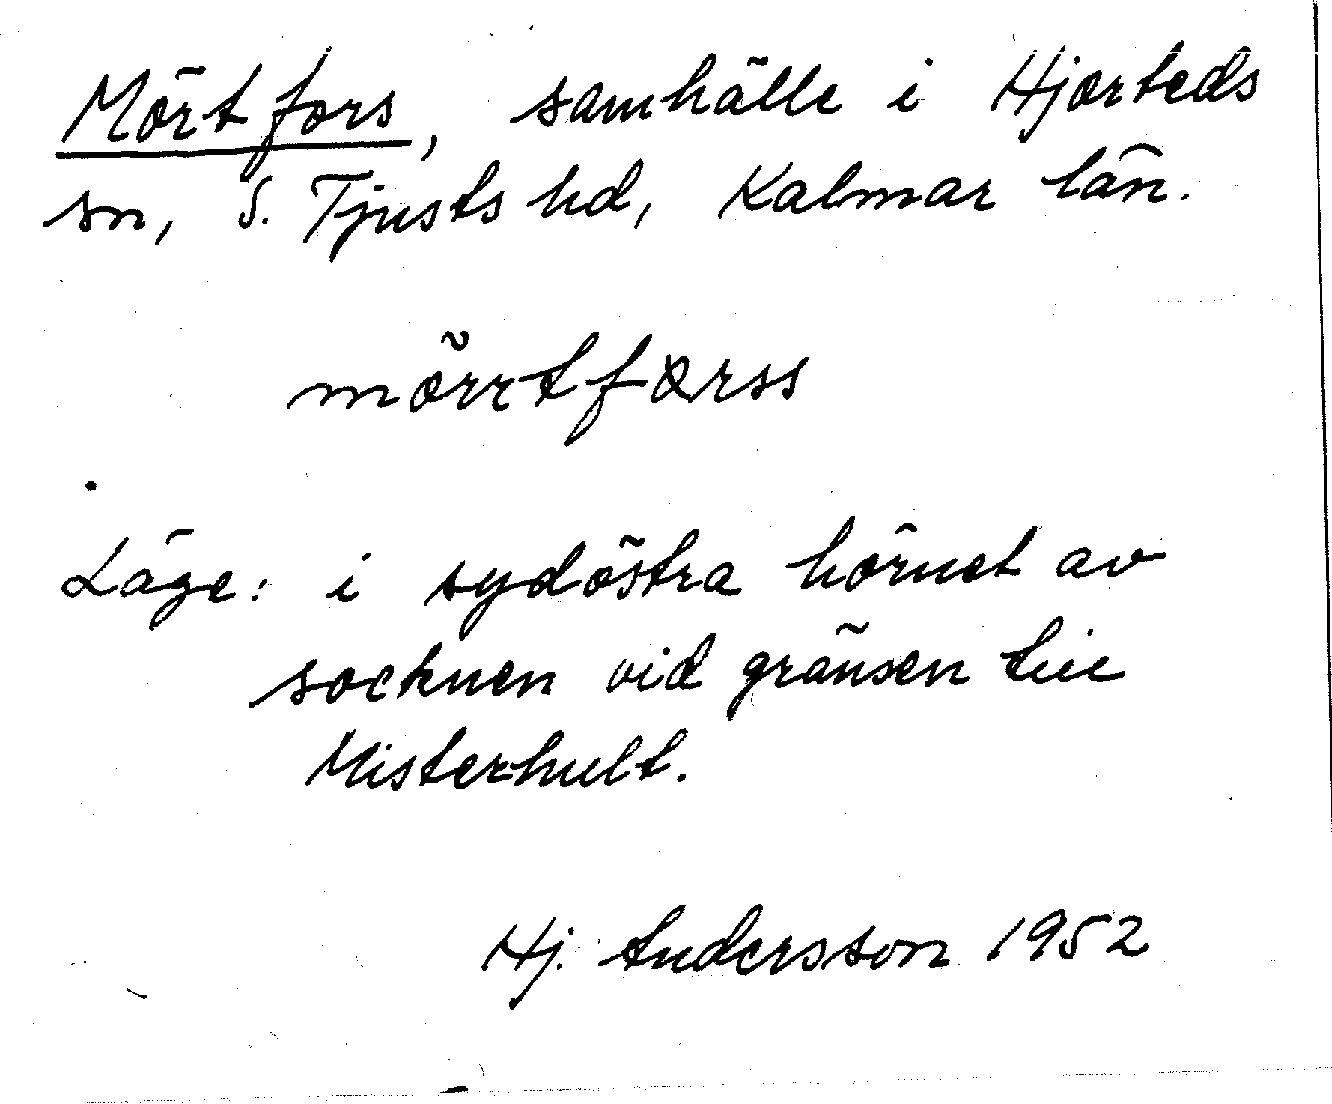 Mörtfors, samhälle i Hjorteds
sn, S. Tjusts hd, Kalmar län.
mörrtfɑrss
Läge: i sydöstra hörnet av
socknen vid gränsen till
Misterhult.
Hj. Andersson 1952